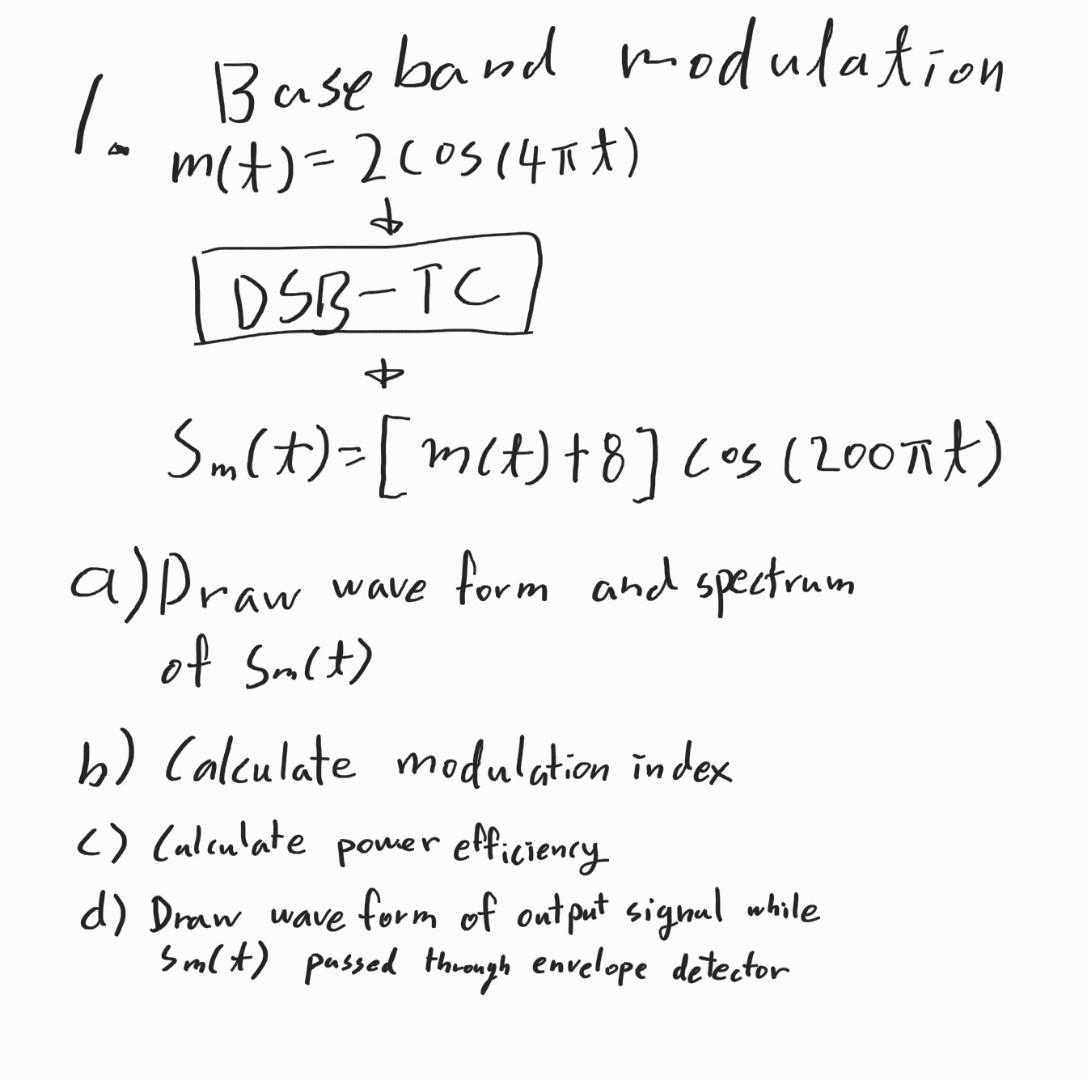 1. Baseband modulation
m(t)=2cos(4πt)
↓
DSB-TC
↓
Sm(t)=[m(t)+8]cos(200πt)
a) Draw wave form and spectrum
of Sm(t)
b) Calculate modulation index
c) Calculate power efficiency
d) Draw wave form of output signal while
Sm(t) passed through envelope detector